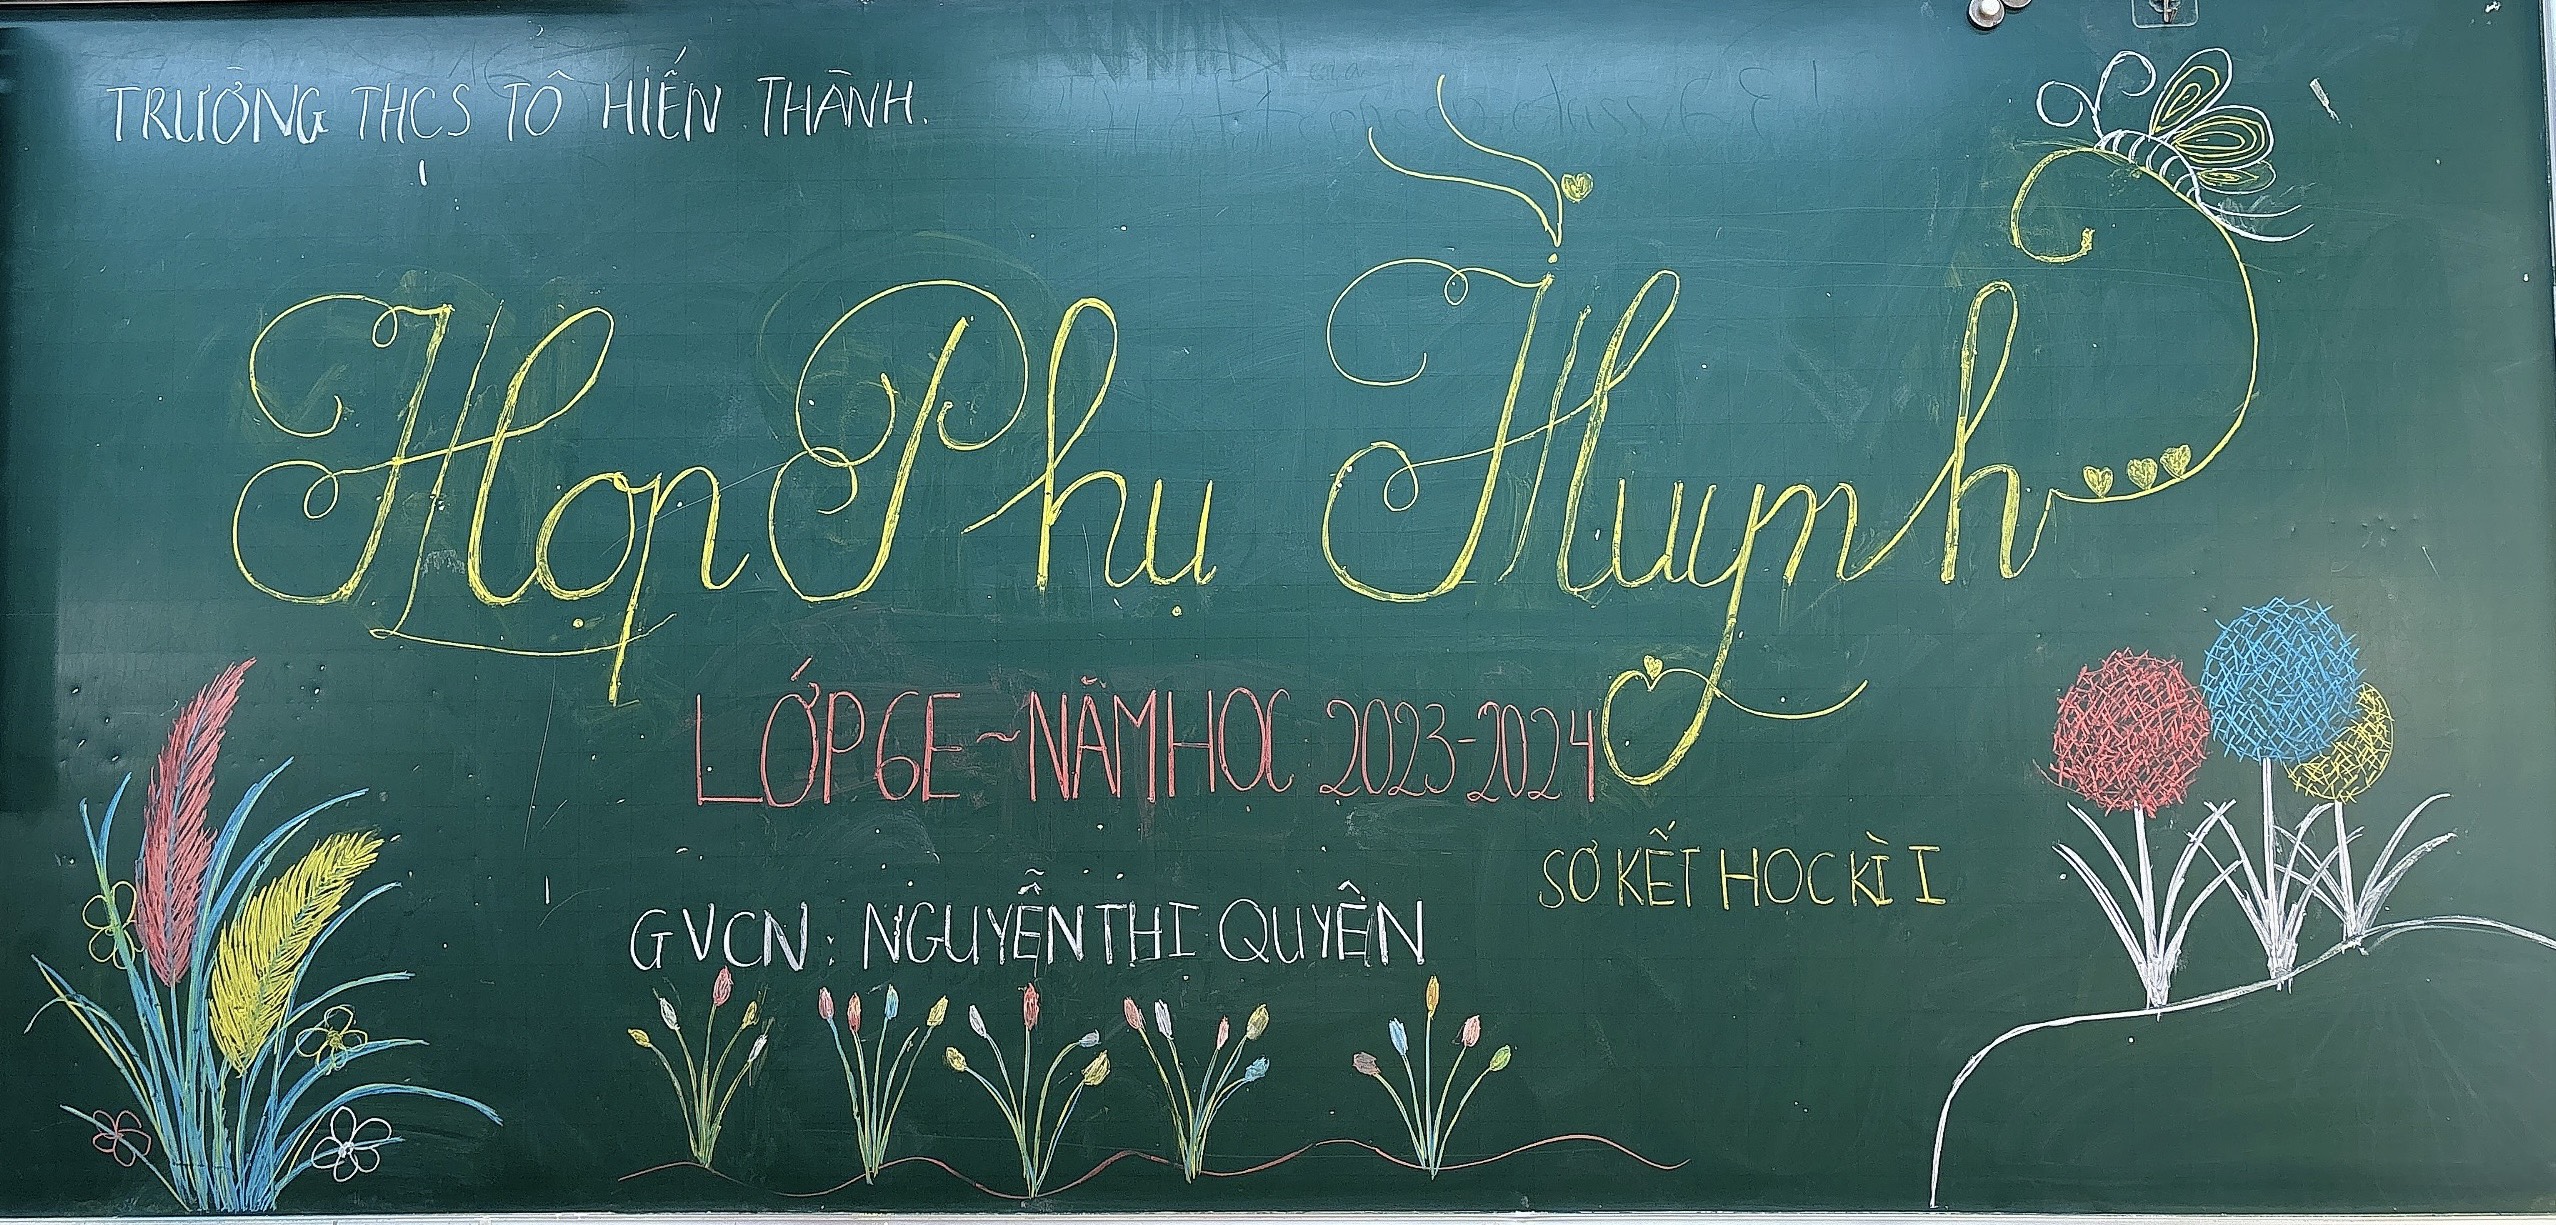 TRƯỜNG THCS TÔ HIẾN THÀNH.
Họp Phụ Huynh
LỚP 6E ~ NĂM HỌC 2023-2024
SƠ KẾT HỌC KÌ I
GVCN: NGUYỄN THỊ QUYÊN